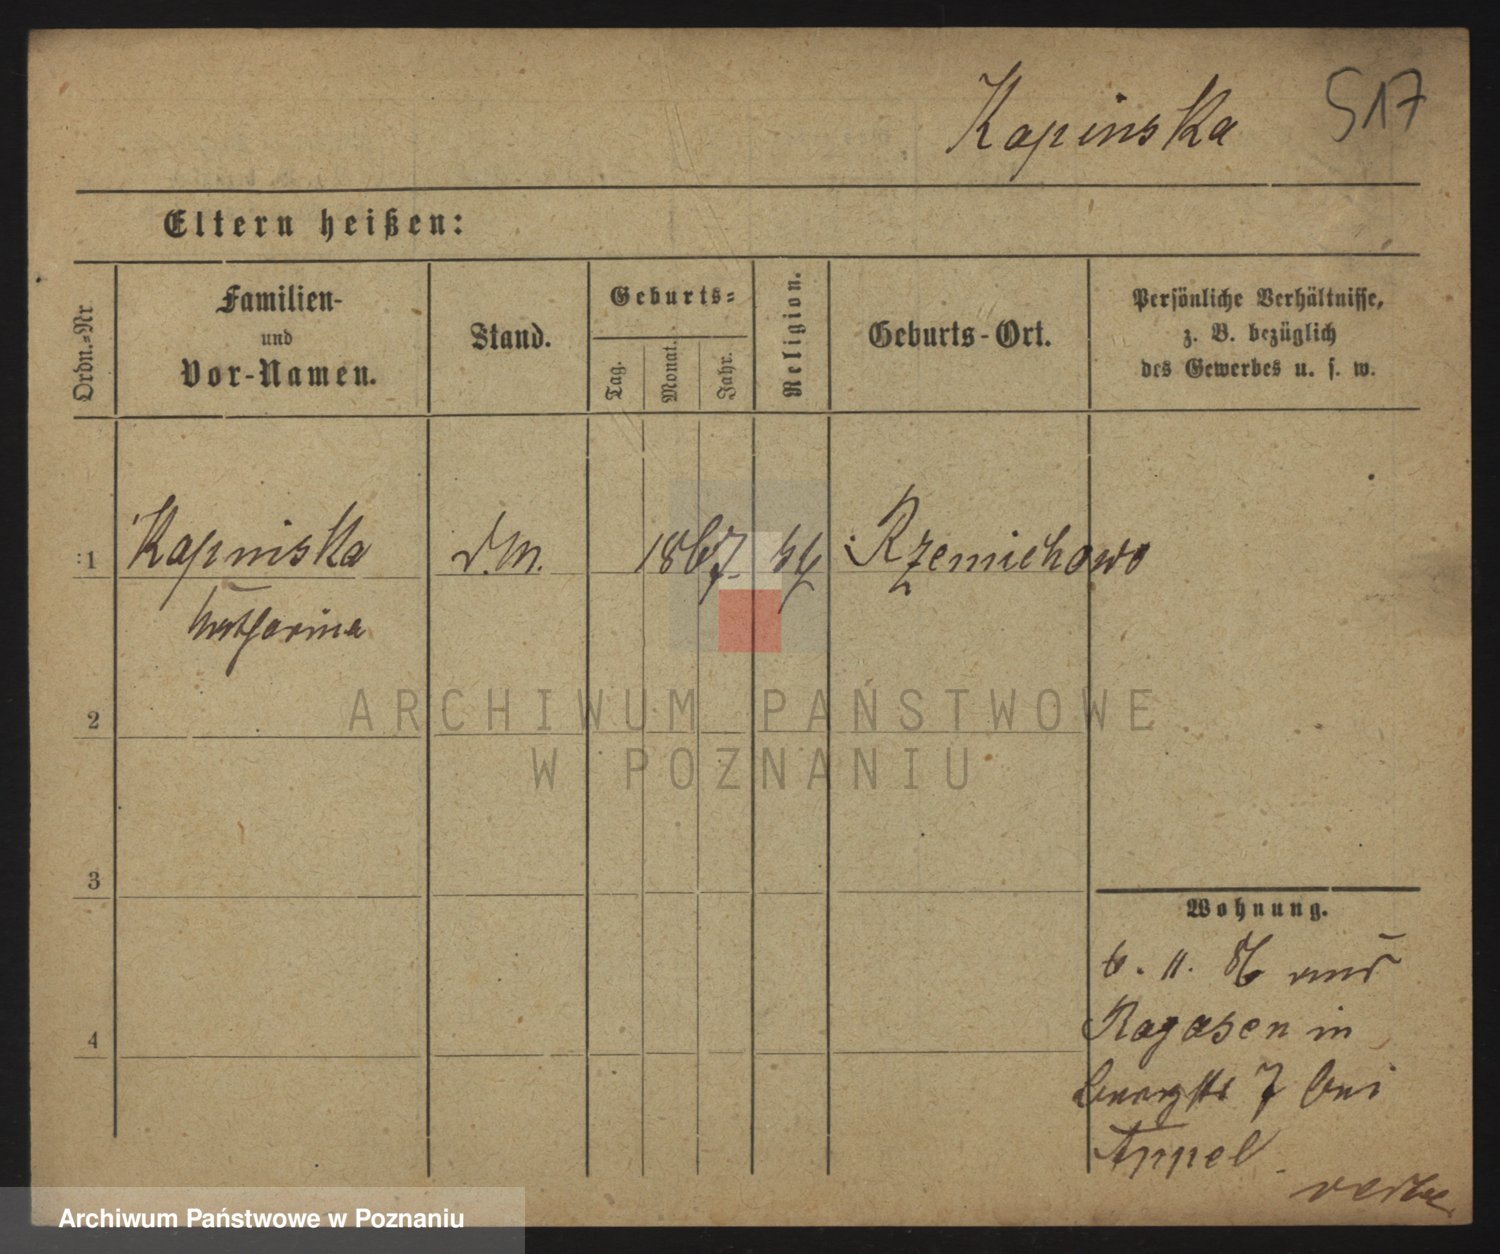 Kapinska 517
Eltern heißen:
Ordn.-Nr
Familien-
und
Vor-Namen.
Stand.
Geburts-
Tag.
Monat.
Jahr.
Religion.
Geburts-Ort.
Persönliche Verhältnisse,
z. B. bezüglich
des Gewerbes u. s. w.
1 Kapinska d.M. 1867. Rzemichowo
Katharina
2
3
4
Wohnung.
6. 11. 86 von
Rogasen in
7 bei
Appel
ARCHIWUM PAŃSTWOWE
W POZNANIU
Archiwum Państwowe w Poznaniu